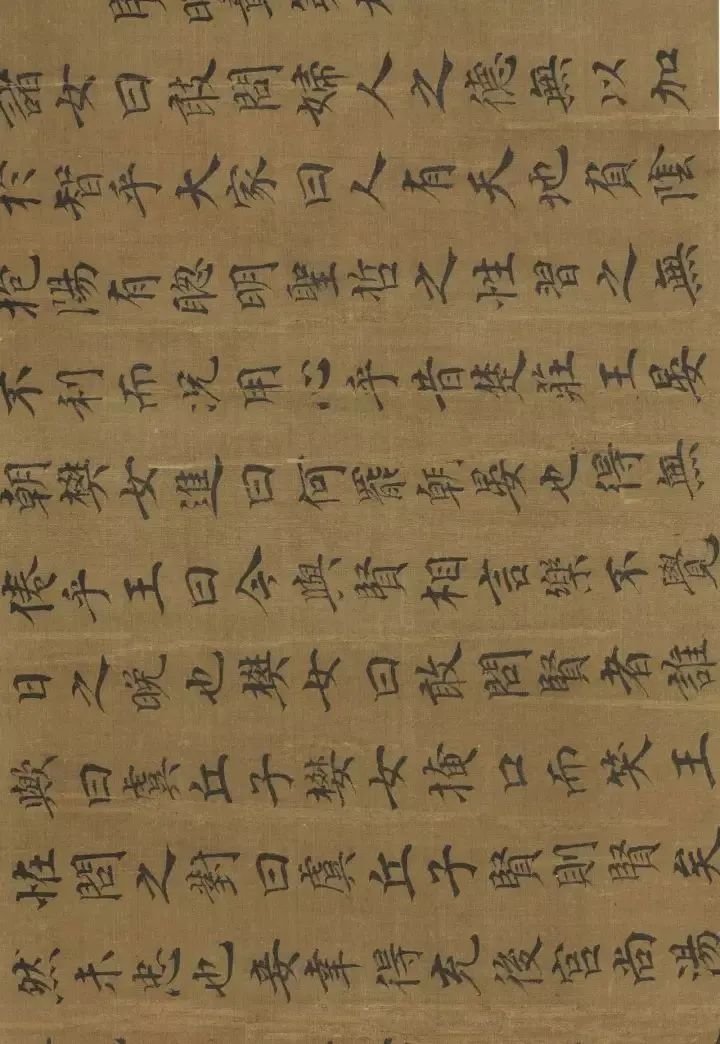 諸女曰敢問婦人之德無以加
於智乎大家曰人有天地負陰
抱陽有聦明聖哲之性習之無
不利而況用心乎昔楚莊王晏
朝樊女進曰何罷朝晏也得無
倦乎王曰今與賢相言樂不覺
日之晚也樊女曰敢問賢者誰
歟曰虞丘子樊女掩口而笑王
恠問之對曰虞丘子賢則賢矣
然未忠也妾幸得充後宮尚湯